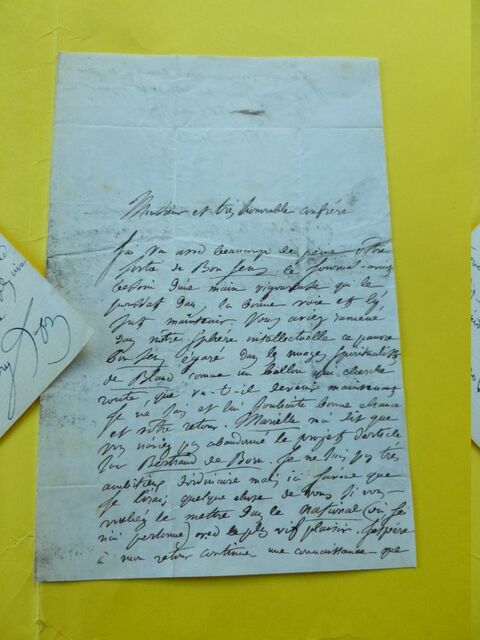 Monsieur et très honorable confrère
J'ai vu avec beaucoup de peine votre
sortie du Bon Sens. Le Journal avait
besoin d'une main vigoureuse qui le
dans la bonne voie et l'y
sut maintenir. Vous aviez ramené
dans notre sphère intellectuelle ce pauvre
Bon Sens égaré dans les nuages
de comme un Ballon qui cherche
route, que va-t-il devenir maintenant
Je ne sais et lui souhaite bonne chance
et votre retour. m'a dit que
vous n'aviez pas abandonné le projet d'article
sur Bertrand de Born. Je ne suis pas très
ambitieux d'ordinaire mais ici j'avoue que
je lirais quelque chose de vous si vous
vouliez le mettre dans le National (où je
n'ai personne) avec le plus vif plaisir. J'espère
à mon retour continuer une connaissance que